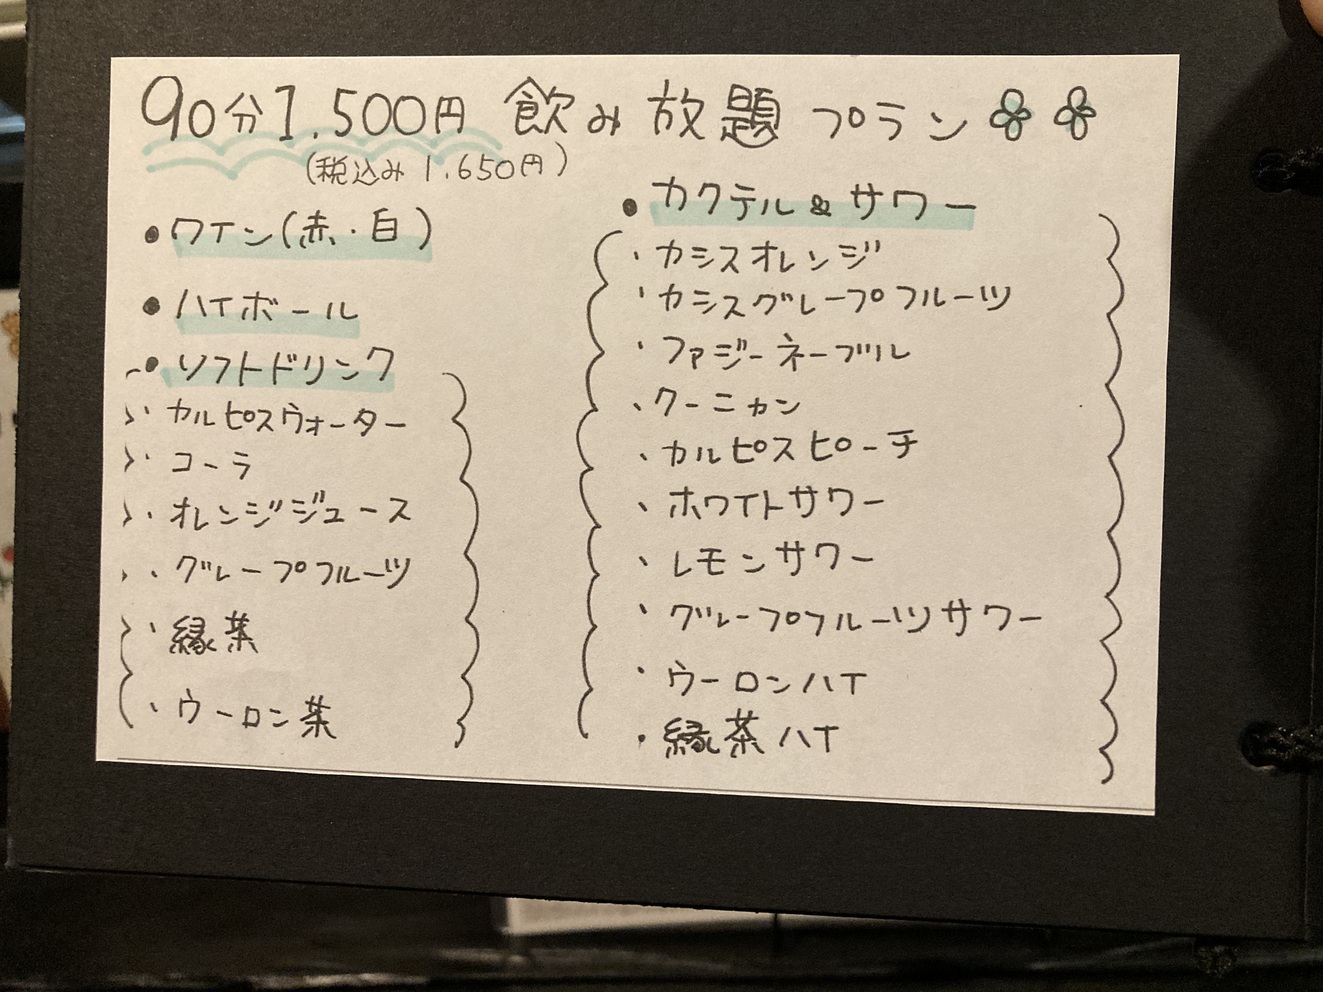 90分1,500円 飲み放題プラン
(税込み 1,650円)
• ワイン(赤・白)
• ハイボール
• ソフトドリンク
・カルピスウォーター
・コーラ
・オレンジジュース
・グレープフルーツ
・緑茶
・ウーロン茶
• カクテル&サワー
・カシスオレンジ
・カシスグレープフルーツ
・ファジーネーブル
・クーニャン
・カルピスピーチ
・ホワイトサワー
・レモンサワー
・グレープフルーツサワー
・ウーロンハイ
・緑茶ハイ